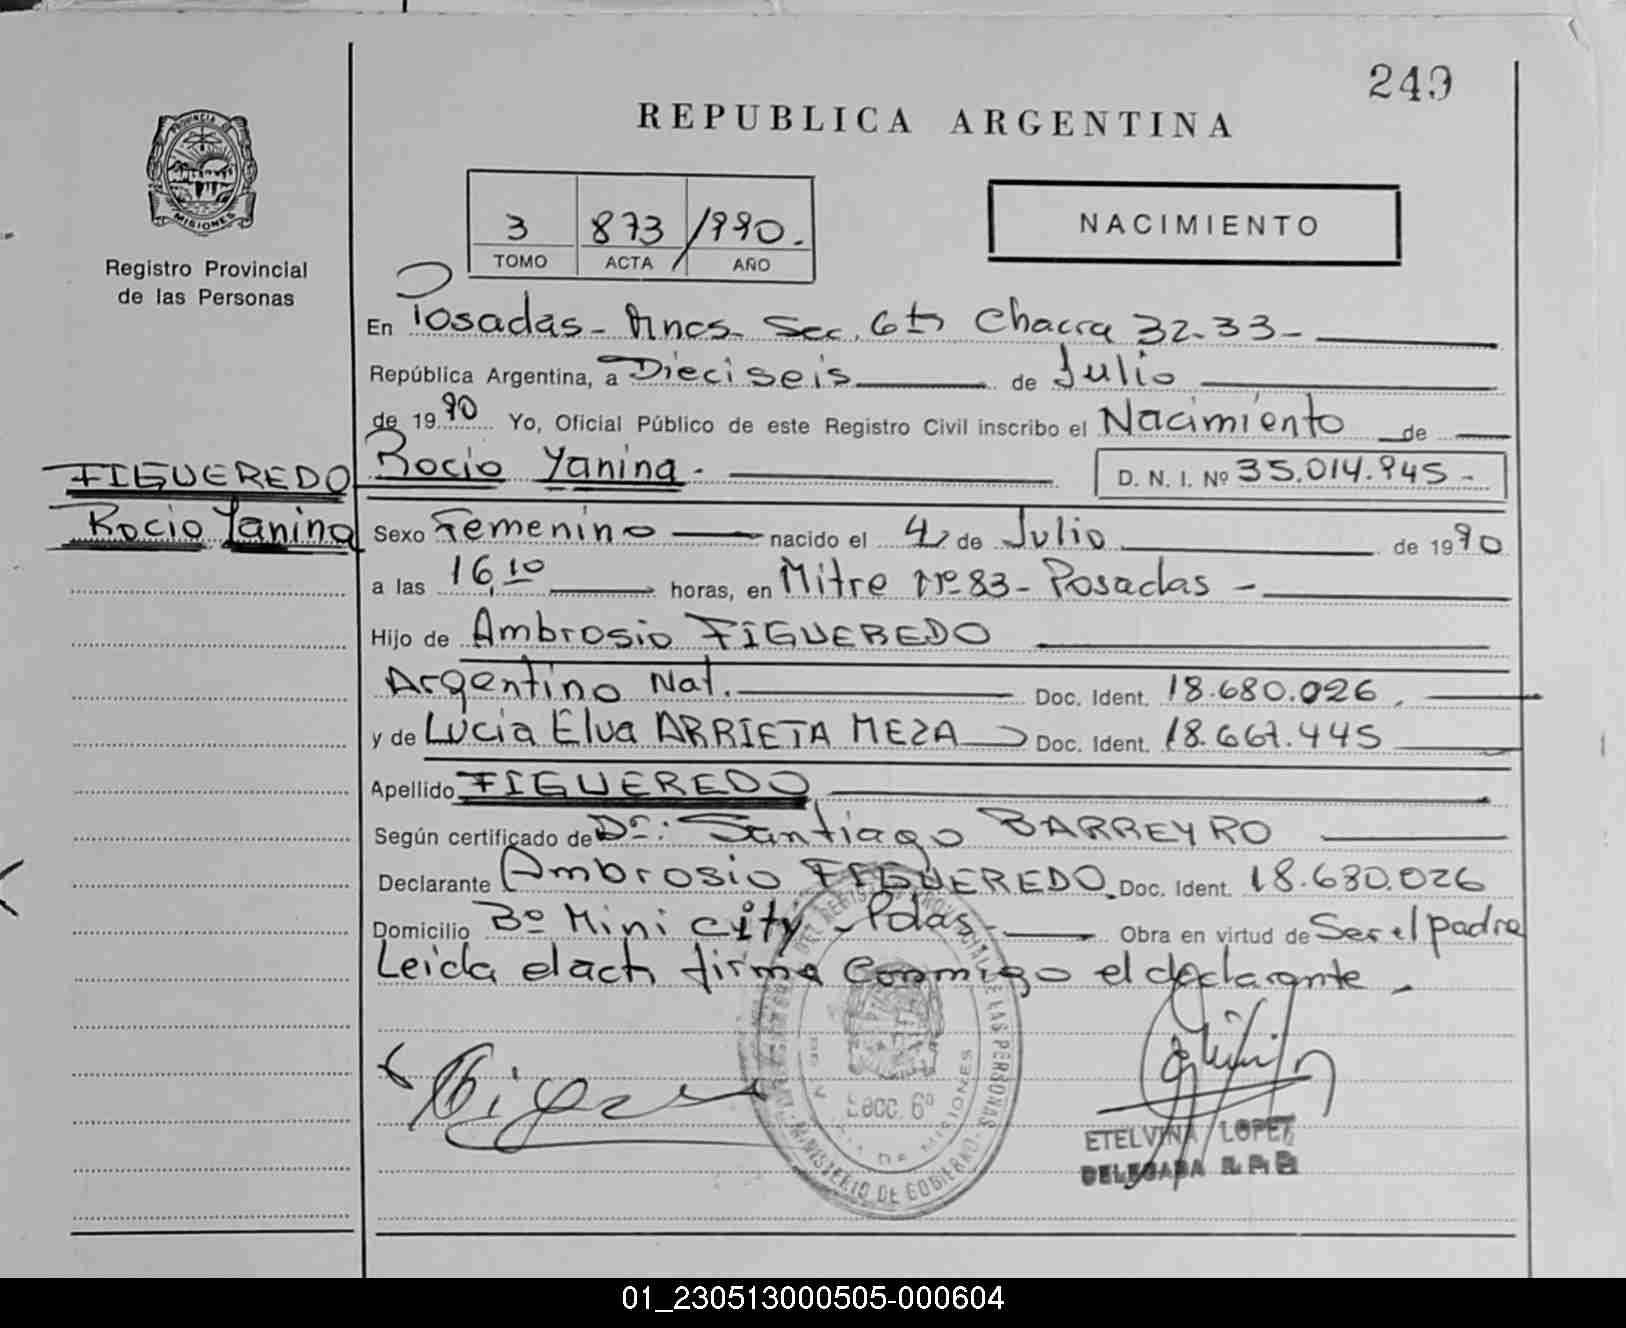 249
REPUBLICA ARGENTINA
PROVINCIA DE
MISIONES
Registro Provincial
de las Personas
3 873 1990.
TOMO ACTA AÑO
NACIMIENTO
En Posadas - Mnes - Sec. 6ta Chacra 32-33 -
República Argentina, a Dieciseis de Julio
de 1990 Yo, Oficial Público de este Registro Civil inscribo el Nacimiento de
FIGUEREDO Rocio Yanina. - D. N. I. Nº 35.014.945 -
Rocio Yanina Sexo Femenino nacido el 4 de Julio de 1990
a las 16,10 horas, en Mitre Nº 83 - Posadas -
Hijo de Ambrosio FIGUEREDO
Argentino Nat. Doc. Ident. 18.680.026.
y de Lucia Elva ARRIETA MEZA Doc. Ident. 18.667.445
Apellido FIGUEREDO
Según certificado de Dr: Santiago BARREYRO
Declarante Ambrosio FIGUEREDO. Doc. Ident. 18.680.026
Domicilio Bº Mini city - Pdas - Obra en virtud de Ser el padre
Leida el acta firma conmigo el declarante. -
Secc. 6º
MINISTERIO DE GOBIERNO
ETELVINA LOPEZ
DELEGADA R.P.P.
01_230513000505-000604